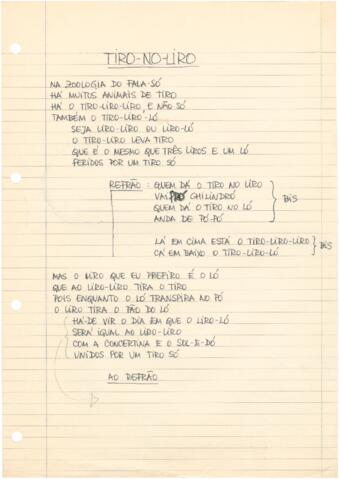 TIRO-NO-LIRO
NA ZOOLOGIA DO FALA-SÓ
HÁ MUITOS ANIMAIS DE TIRO
HÁ O TIRO-LIRO-LIRO, E NÃO SÓ
TAMBÉM O TIRO-LIRO-LÓ
SEJA LIRO-LIRO OU LIRO-LÓ
O TIRO-LIRO LEVA TIRO
QUE É O MESMO QUE TRÊS LIROS E UM LÓ
FERIDOS POR UM TIRO SÓ
REFRÃO: QUEM DÁ O TIRO NO LIRO
VAI CHILINDRÓ
QUEM DÁ O TIRO NO LÓ
ANDA DE PÓ-PÓ
BIS
LÁ EM CIMA ESTÁ O TIRO-LIRO-LIRO
CÁ EM BAIXO O TIRO-LIRO-LÓ
BIS
MAS O LIRO QUE EU PREFIRO É O LÓ
QUE AO LIRO-LIRO TIRA O TIRO
POIS ENQUANTO O LÓ TRANSPIRA NO PÓ
O LIRO TIRA O PÃO DO LÓ
HÁ-DE VIR O DIA EM QUE O LIRO-LÓ
SERÁ IGUAL AO LIRO-LIRO
COM A CONCERTINA E O SOL-E-DÓ
UNIDOS POR UM TIRO SÓ
AO REFRÃO